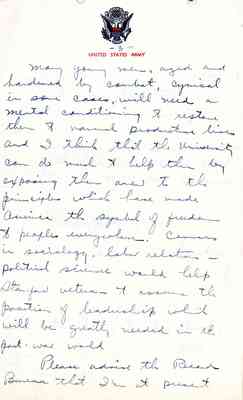 UNITED STATES ARMY
- 3 -
many young men, aged and
hardened by combat, cynical
in some cases, will need a
mental conditioning to restore
them to normal productive lives
and I think that the University
can do much to help them by
exposing them anew to the
principles which have made
America the symbol of freedom
to peoples everywhere. Courses
in sociology, labor relations -
political science would help
Stanford veterans to assume the
position of leadership which
will be greatly needed in the
post-war world
Please advise the Bear
Bureau that I'm at present